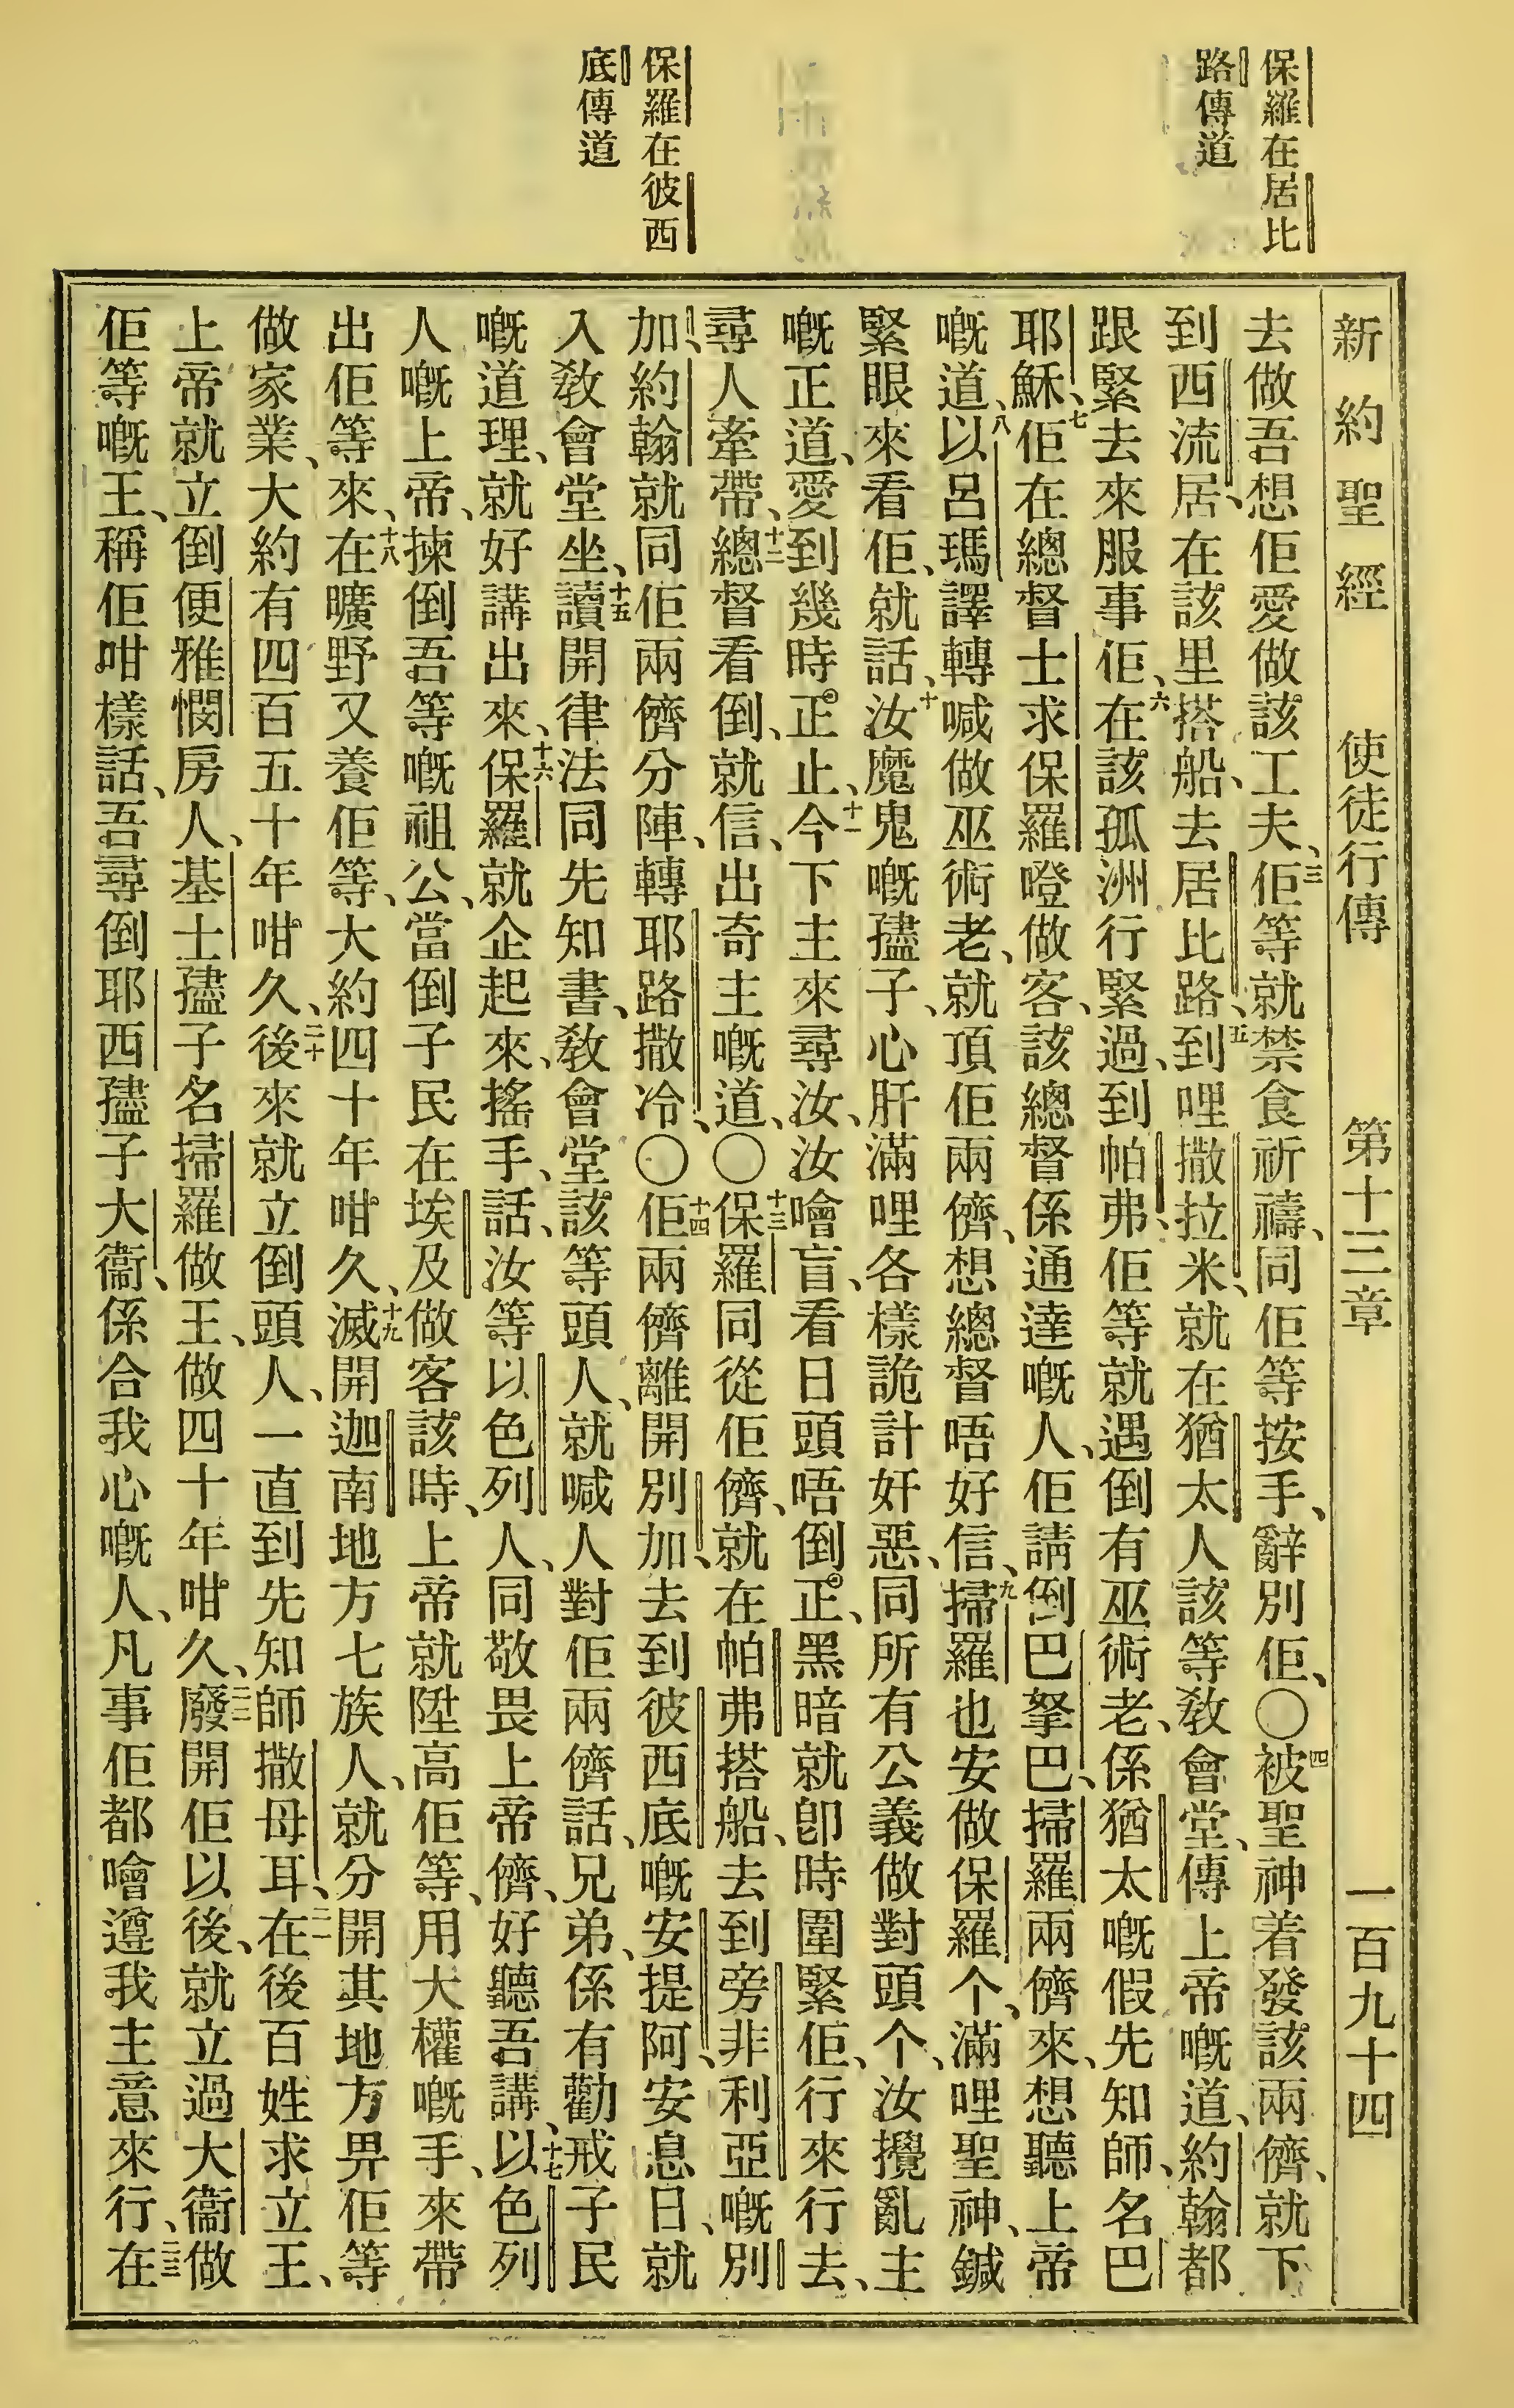 保羅在居比
路傳道
保羅在彼西
底傳道
新約聖經 使徒行傳 第十三章 一百九十四
去做吾想佢愛做該工夫、三佢等就禁食祈禱、同佢等按手、辭別佢、〇四被聖神着發該兩儕、就下
到西流居、在該里搭船、去居比路、五到哩撒拉米、就在猶太人該等教會堂、傳上帝嘅道、約翰都
跟緊去來服事佢、六在該孤洲行緊過、到帕弗、佢等就遇倒有巫術老、係猶太嘅假先知師、名巴
耶穌、七佢在總督士求保羅嶝做客、該總督係通達嘅人、佢請倒巴拏巴、掃羅兩儕來、想聽上帝
嘅道、八以呂瑪譯轉喊做巫術老、就頂佢兩儕、想總督唔好信、九掃羅也安做保羅个、滿哩聖神、鍼
緊眼來看佢、就話、十汝魔鬼嘅孻子、心肝滿哩各樣詭計奸惡、同所有公義做對頭个、汝攪亂主
嘅正道、愛到幾時正止、十一今下主來尋汝、汝噲盲、看日頭唔倒正、黑暗就卽時圍緊佢、行來行去、
尋人牽帶、十二總督看倒、就信、出奇主嘅道、〇十三保羅同從佢儕、就在帕弗搭船、去到旁非利亞嘅別
加、約翰就同佢兩儕分陣、轉耶路撒冷、〇十四佢兩儕離開別加、去到彼西底嘅安提阿、安息日、就
入教會堂坐、十五讀開律法同先知書、教會堂該等頭人、就喊人對佢兩儕話、兄弟、係有勸戒子民
嘅道理、就好講出來、十六保羅就企起來、搖手、話、汝等以色列人、同敬畏上帝儕、好聽吾講、十七以色列
人嘅上帝、揀倒吾等嘅祖公、當倒子民在埃及做客該時、上帝就陞高佢等、用大權嘅手、來帶
出佢等來、十八在曠野又養佢等、大約四十年咁久、十九滅開迦南地方七族人、就分開其地方畀佢等
做家業、大約有四百五十年咁久、二十後來就立倒頭人、一直到先知師撒母耳、二一在後百姓求立王、
上帝就立倒便雅憫房人、基士孻子名掃羅做王、做四十年咁久、二二廢開佢以後、就立過大衞做
佢等嘅王、稱佢咁樣話、吾尋倒耶西孻子大衞、係合我心嘅人、凡事佢都噲遵我主意來行、二三在